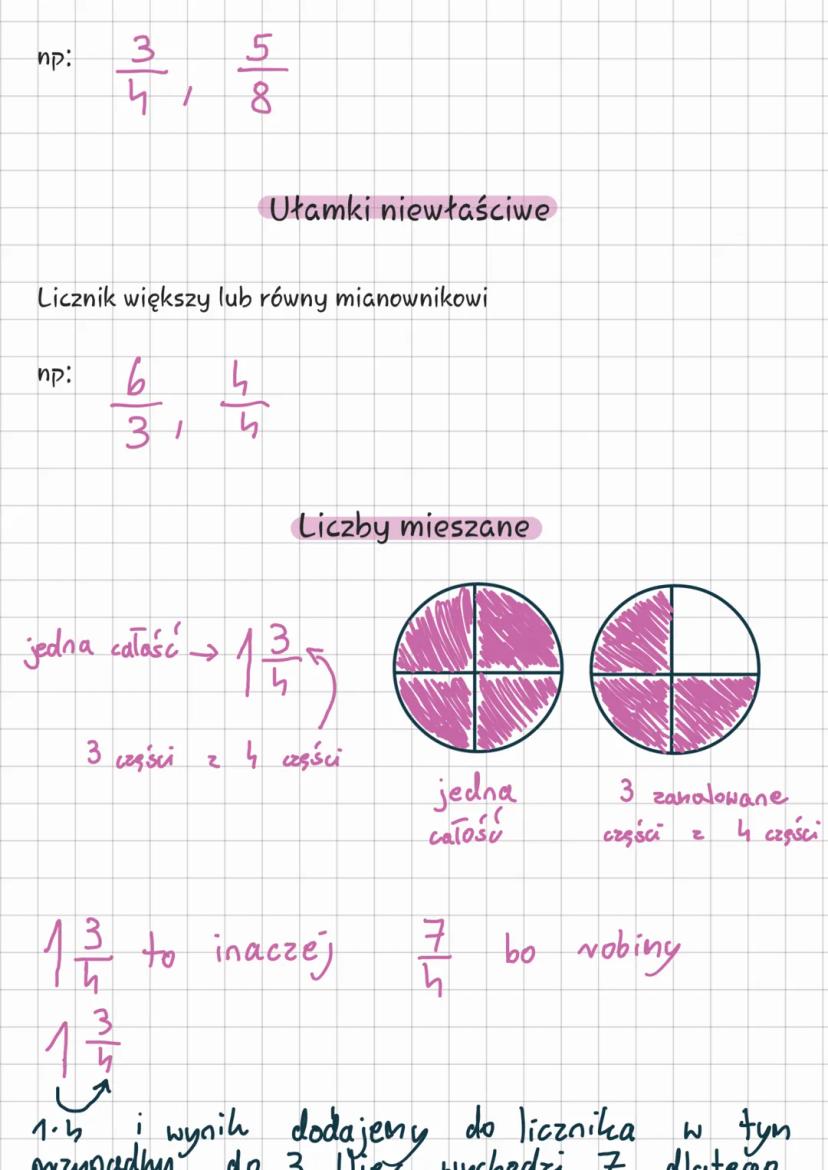 np: 3/4, 5/8
Ułamki niewłaściwe
Licznik większy lub równy mianownikowi
np: 6/3, 4/4
Liczby mieszane
jedna całość → 1 3/4
3 części z 4 części
jedna
całość
3 zamalowane
części z 4 części
1 3/4 to inaczej 7/4 bo robimy
1 3/4
1·4 i wynik dodajemy do licznika w tym
przypadku do 3 więc wychodzi 7 dlatego